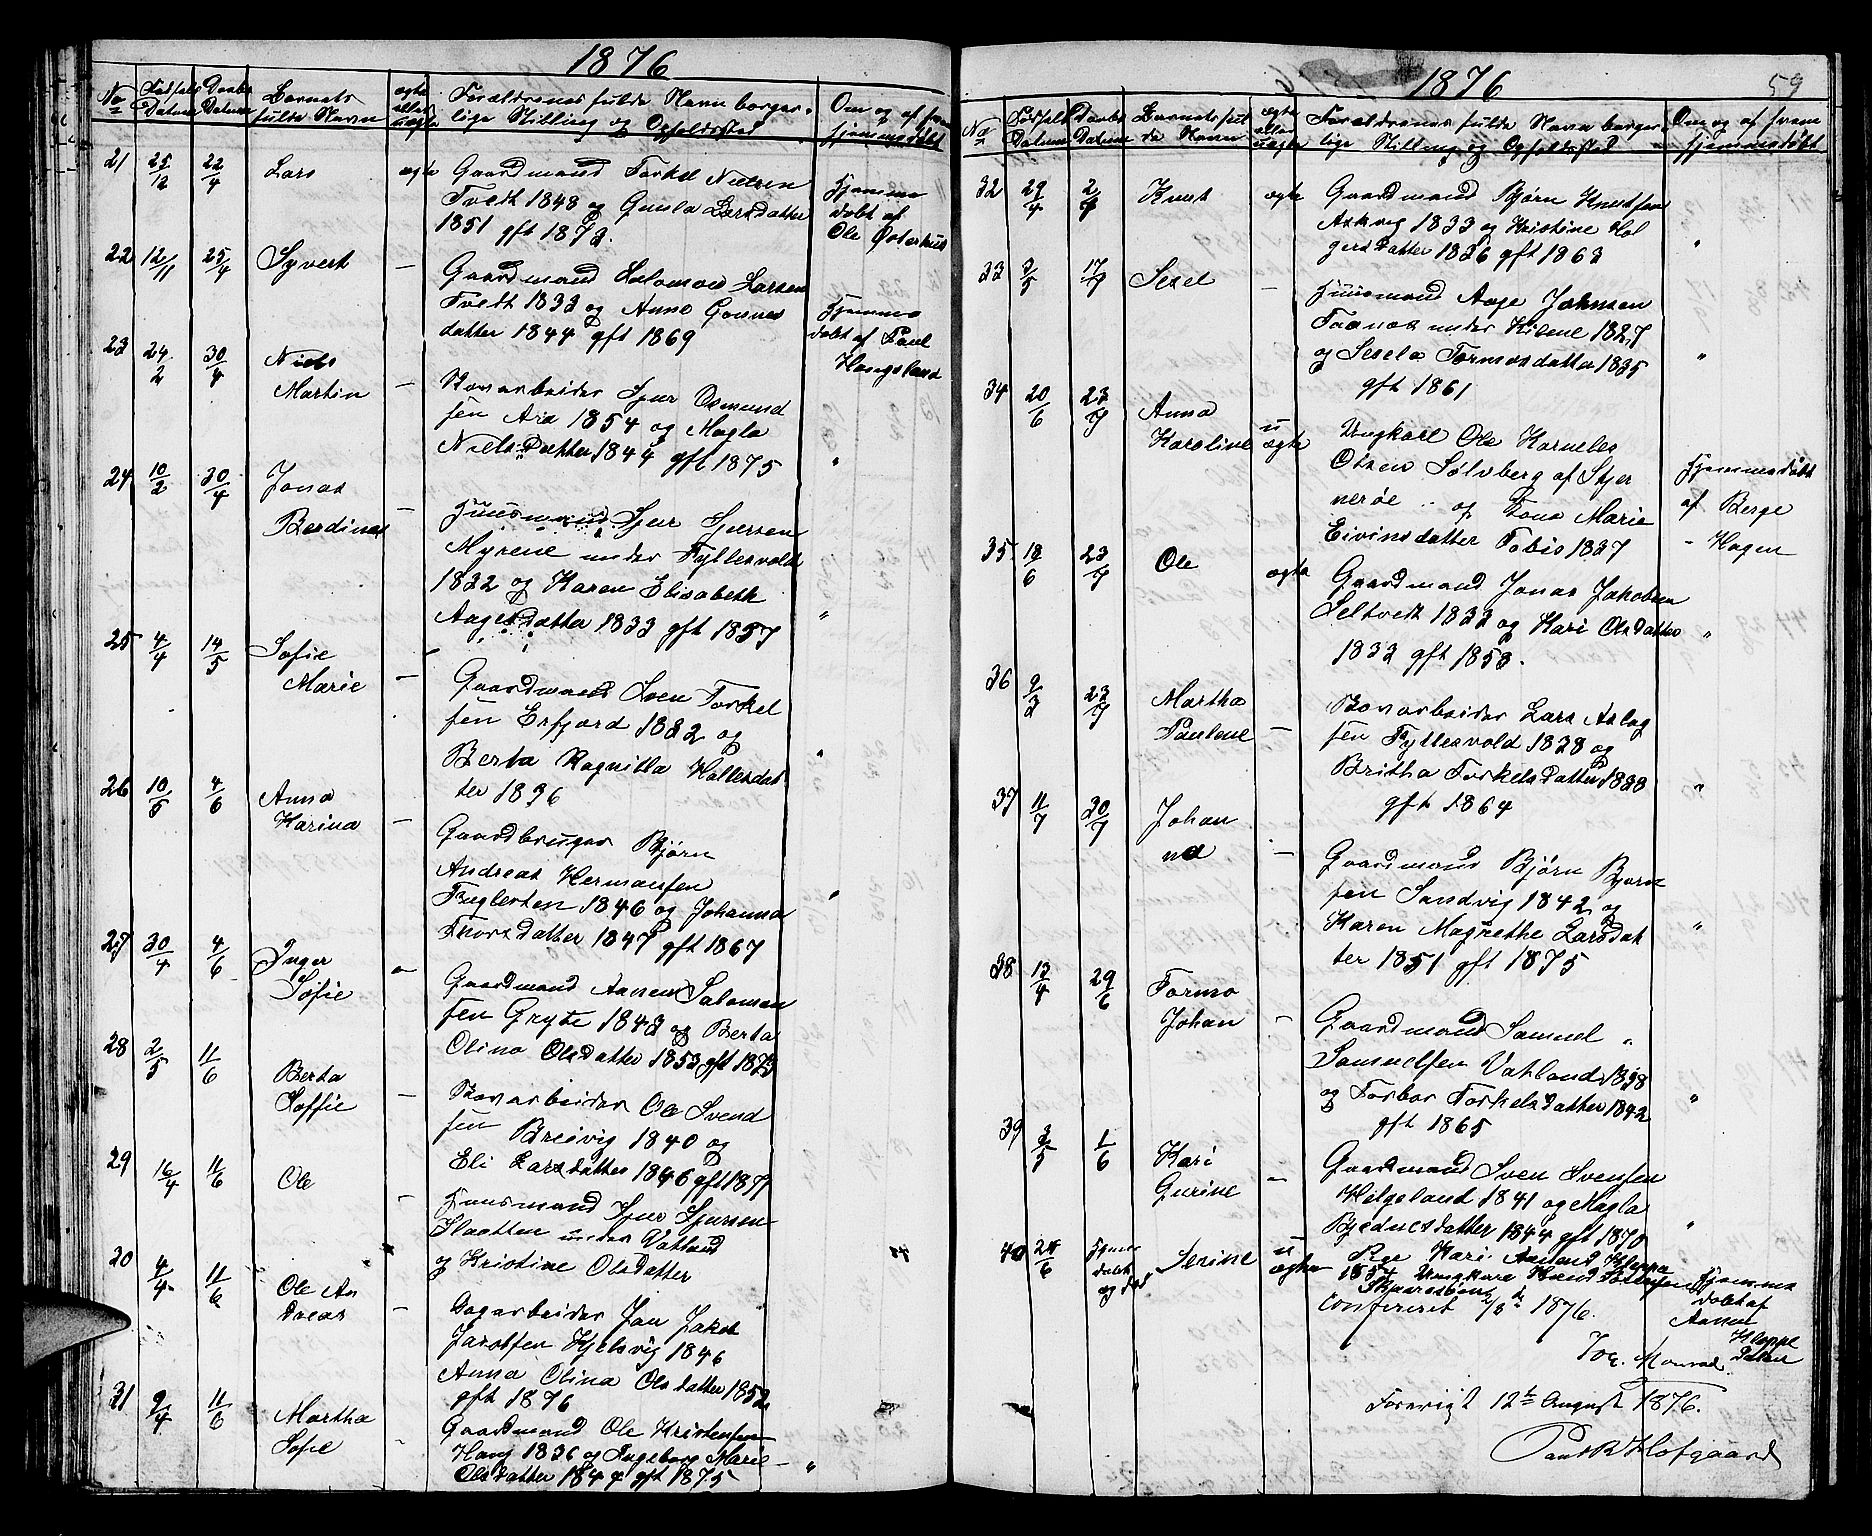 1876
No Fødsels Datum Daabs Datum Barnets fulde Navn ægte eller uægte Forældrenes fulde Navn borgerlige Stilling og Opholdssted Om og af hvem hjemmedøbt
21 25/12 22/4 Lars ægte Gaardmand Torkel Nielsen
Tvedt 1848 og Gunla Larsdatter
1851 gft 1873.
Hjemme
døbt af
Ole Østerhus
22 12/11 23/4 Syvert — Gaardmand Salomon Larsen
Tvedt 1833 og Anne Gonnes
datter 1844 gft 1869
Hjemme
døbt af Paul
Haugsland
23 24/2 30/4 Niels
Martin — Bonarbeider Sjur Osmund
sen Ara 1854 og Magla
Nielsdatter 1844 gft 1875 "
24 10/2 30/4 Jonas
Berdines — Huusmand Sjur Sjursen
Myrene under Fyllesvold
1822 og Karen Elisabeth
Aagesdatter 1833 gft 1857 "
25 4/4 14/5 Sofie
Marie — Gaardmand Sven Torkel
sen Erfjord 1832 og
Berta Ragnilla Hallesdat
ter 1836 "
26 10/5 4/6 Anna
Karina — Gaardbruger Bjørn
Andreas Hermansen
Fuglesten 1846 og Johanna
Thorsdatter 1847 gft 1867 "
27 30/4 4/6 Inger
Sofie — Gaardmand Aanen Salomon
sen Gryte 1843 og Berta
Olina Olsdatter 1853 gft 1875
28 2/5 11/6 Berta
Soffie — Bonarbeider Ole Svend
sen Breivig 1840 og
Eli Larsdatter 1846 gft 1871
29 16/4 11/6 Ole — Huusmand Sjur Sjursen
Slaatten under Vatland
og Kristine Olsdatter
30 4/4 11/6 Ole An
dreas — Dagarbeider Jan Jakob
Jacobsen Hjelsvig 1846
Anna Olina Olsdatter 1852
gft 1876
31 9/4 11/6 Martha
Sofie - Gaardmand Ole Kristensen
Haug 1836 og Ingeborg Marie
Olsdatter 1844 gft 1875 "
1876 59
No Fødsels Datum Daabs Datum Barnets ful de Navn ægte eller uægte Forældrenes fulde Navn borger lige Stilling og Opholdssted Om og af hvem hjemmedøbt
32 29/4 2/7 Knut ægte Gaardmand Bjørn Knutsen
Askvig 1833 og Kristine Hol
gersdatter 1836 gft 1863 "
33 3/5 17/7 Sesel — Huusmand Aage Johnsen
Taanes under Kilene 1827
og Sesela Tormosdatter 1835
gft 1861 "
34 20/6 23/7 Anna
Karoline u
ægte Ungkarl Ole Korneles
Olsen Sølvberg af Stjer
nerøe og Tona Marie
Eivinsdatter Tobis 1837
Hjemmedøbt
af Berge
- Hagen
35 18/6 23/7 Ole ægte Gaardmand Jonas Jakobsen
Seltvedt 1833 og Kari Olsdatter
1832 gft 1853. "
36 9/3 23/7 Martha
Paulene — Bonarbeider Lars Aslag
sen Fyllesvold 1828 og
Britha Torkelsdatter 1838
gft 1864 "
37 11/7 30/7 Johan
na — Gaardmand Bjørn Bjørn
sen Sandvig 1842 og
Karen Magrethe Larsdat
ter 1851 gft 1875 "
38 13/4 29/6 Tormo
Johan — Gaardmand Samuel
Samuelsen Vatland 1838
og Torbor Torkelsdatter 1842
gft 1865 "
39 3/5 1/6 Kari
Gurine — Gaardmand Sven Svensen
Helgeland 1841 og Magla
Bjednesdatter 1844 gft 1870 "
40 24/6 Hjemme
døbt
og død Serine u
ægte Pige Kari Aanend Kleppa
1854 Ungkarl
Hjemme
døbt af
Aanen
Kleppe
Confereret 1876.
Joe. Monrad
Foreviist 12te August 1876.
Paul R Hofgaard